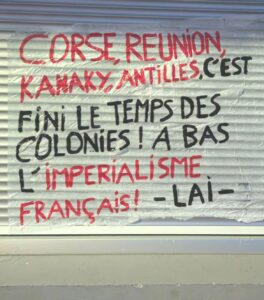 CORSE, REUNION,
KANAKY, ANTILLES, C'EST
FINI LE TEMPS DES
COLONIES ! A BAS
L'IMPERIALISME
FRANÇAIS ! - LAI -